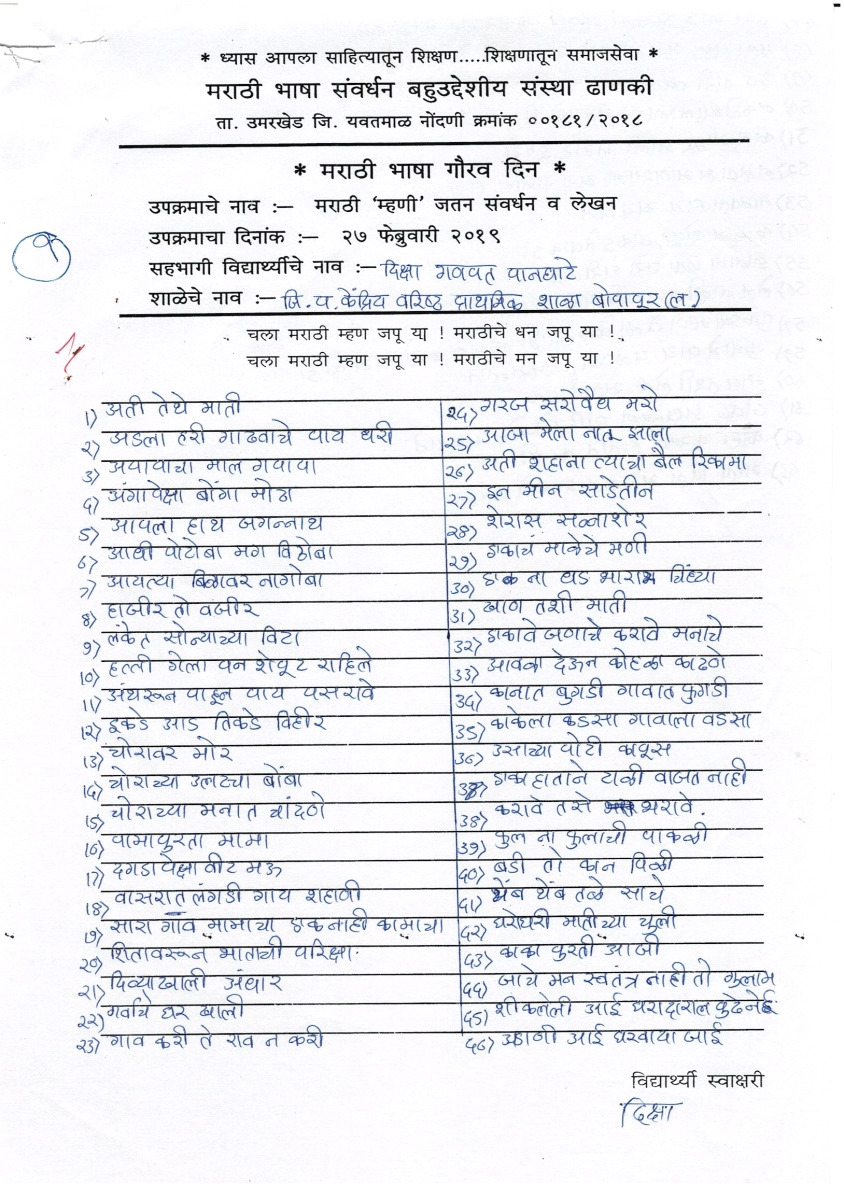 * ध्यास आपला साहित्यातून शिक्षण.....शिक्षणातून समाजसेवा *
मराठी भाषा संवर्धन बहुउद्देशीय संस्था ढाणकी
ता. उमरखेड जि. यवतमाळ नोंदणी क्रमांक ००१८१/२०१८
* मराठी भाषा गौरव दिन *
उपक्रमाचे नाव :— मराठी 'म्हणी' जतन संवर्धन व लेखन
उपक्रमाचा दिनांक :— २७ फेब्रुवारी २०१९
सहभागी विद्यार्थ्यीचे नाव :— दिक्षा गवचत पानघाटे
शाळेचे नाव :— जि.प.केंद्रिय वरिष्ठ प्राथमिक शाळा बोपापूर(ल)
चला मराठी म्हण जपू या ! मराठीचे धन जपू या !
चला मराठी म्हण जपू या ! मराठीचे मन जपू या !
१) अती तेथे माती
२) अडला हरी गाढवाचे पाय धरी
३) अपायाचा माल गपापा
४) अंगापेक्षा बोंगा मोठा
५) आपला हाथ जगन्नाथ
६) आधी पोटोबा मग विठोबा
७) आयत्या बिळावर नागोबा
८) हाजीर तो वजीर
९) लंकेत सोन्याच्या विटा
१०) हत्ती गेला पन शेपूट राहिले
११) अंथरून पाहून पाय पसरावे
१२) इकडे आड तिकडे विहीर
१३) चोरावर मोर
१४) चोराच्या उलट्या बोंबा
१५) चोराच्या मनात चांदणे
१६) कामापुरता मामा
१७) दगडापेक्षा वीट मऊ
१८) वासरात लंगडी गाय शहाणी
१९) सारा गाव मामाचा एक नाही कामाचा
२०) शितावरून भाताची परिक्षा
२१) दिव्याखाली अंधार
२२) गर्वाचे घर खाली
२३) गाव करी ते राव न करी
२४) गरज सरो वैध मरो
२५) आजा मेला नातू झाला
२६) अती शहाना त्याचा बैल रिकामा
२७) इन मीन साडेतीन
२८) शेरास सव्वाशेर
२९) एकाचं माळेचे मणी
३०) एक ना धड भाराभ चिंध्या
३१) खाण तशी माती
३२) एकावे जणाचे करावे मनाचे
३३) आवळा देऊन कोहळा काढणे
३४) कानात बुगडी गावात फुगडी
३५) काकेला कळसा गावाला वळसा
३६) उसाच्या पोटी कापूस
३७) एका हाताने टाळी वाजत नाही
३८) करावे तसे भरावे.
३९) फुल ना फुलाची पाकळी
४०) बडी तो कान पिळी
४१) थेंब थेंब तळे साचे
४२) घरोघरी मातीच्या चुली
४३) काका पुरती आजी
४४) जाचे मन स्वतंत्र नाही तो गुलाम
४५) शीकलेली आई घरादाराल पुढे नेई
४६) अडाणी आई घरवाया जाई
विद्यार्थ्यी स्वाक्षरी
दिक्षा